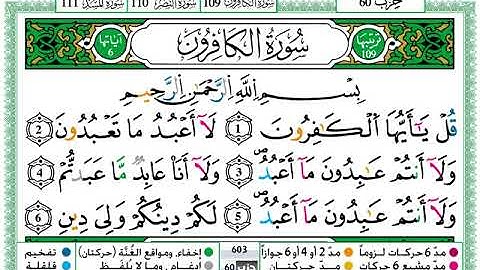 حزب 60 سورة الكافرون 109 سورة النصر 110 سورة المسد 111
رتبتها 109 سُورَةُ الكَافِرُون آياتها 6
بِسْمِ اللَّهِ الرَّحْمَٰنِ الرَّحِيمِ
قُلْ يَٰٓأَيُّهَا الْكَٰفِرُونَ 1 لَآ أَعْبُدُ مَا تَعْبُدُونَ 2
وَلَآ أَنتُمْ عَٰبِدُونَ مَآ أَعْبُدُ 3 وَلَآ أَنَا۠ عَابِدٌ مَّا عَبَدتُّمْ 4
وَلَآ أَنتُمْ عَٰبِدُونَ مَآ أَعْبُدُ 5 لَكُمْ دِينُكُمْ وَلِيَ دِينِ 6
مدّ 6 حركات لزوماً مدّ 2 أو 4 أو 6 جوازاً 603 إخفاء، ومواقع الغُنَّة (حركتان) تفخيم
مدّ مشبع 6 حركات مدّ حركتان 60 إدغام، وما لا يُلفَظ قلقلة